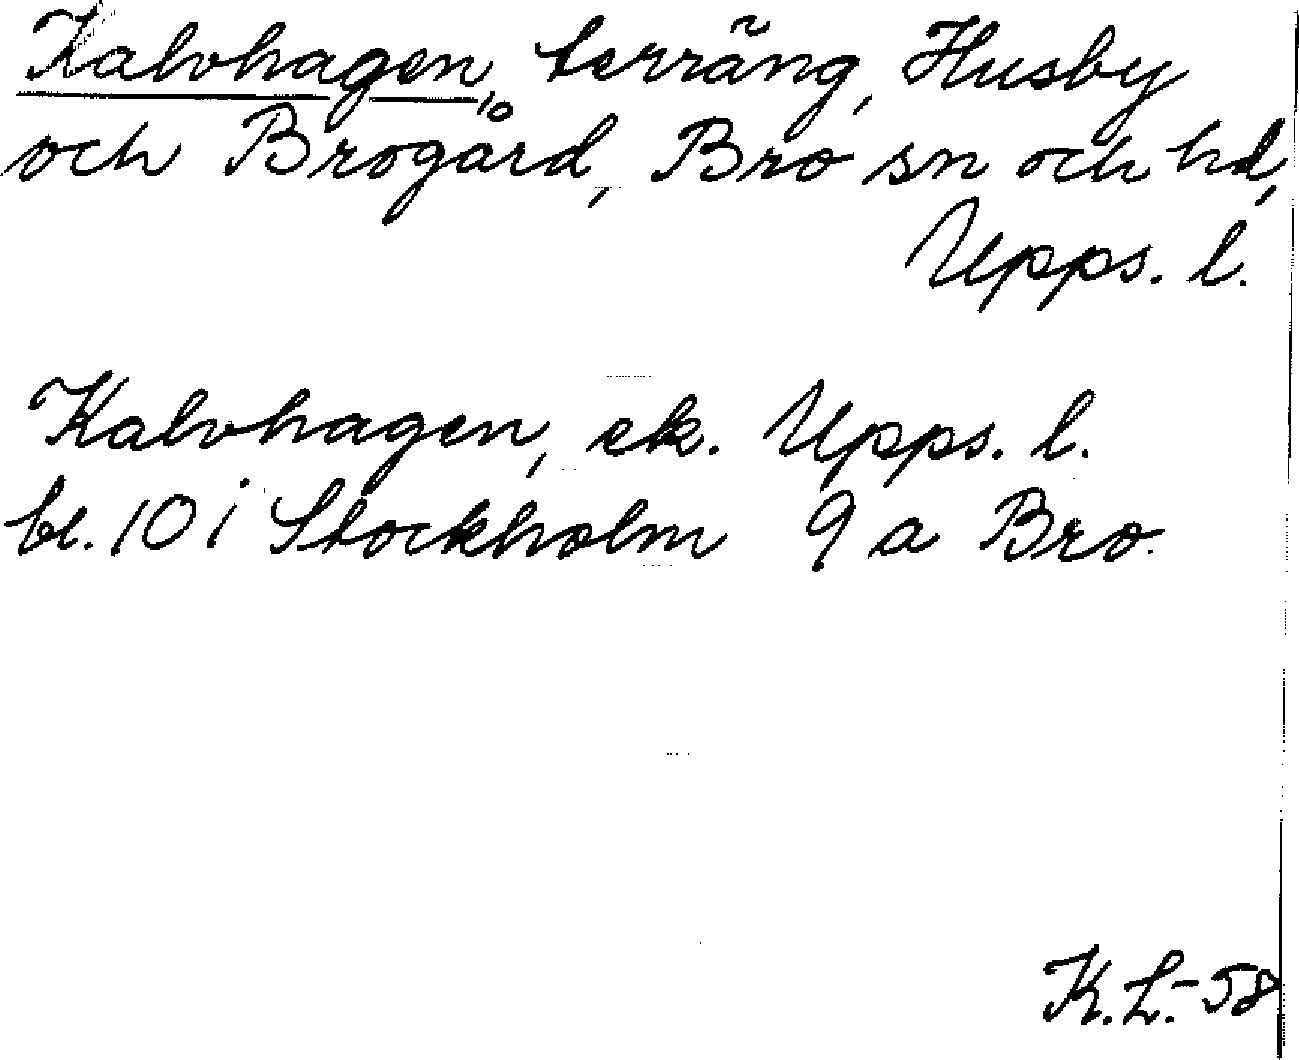 Kalvhagen, terräng, Husby
och Brogård, Bro sn och hd,
Upps. l.
Kalvhagen, ek. Upps. l.
bl. 10 i Stockholm 9 a Bro.
K. L. - 58